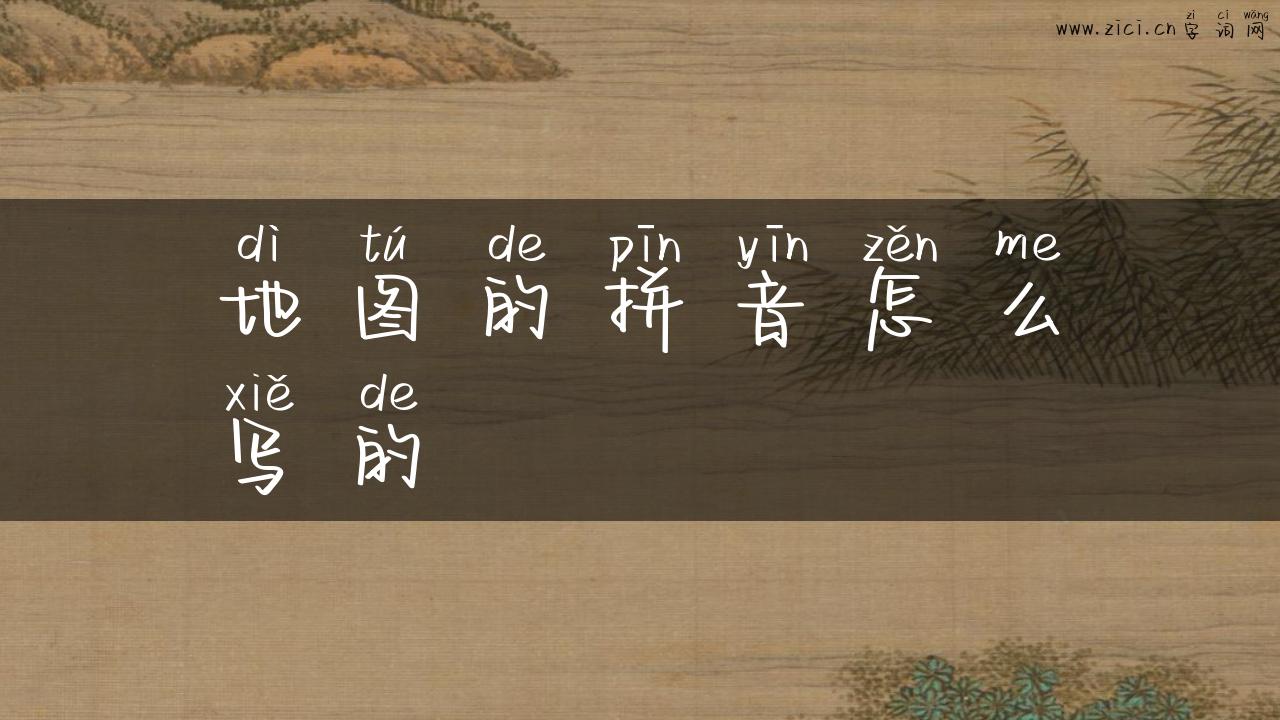 zì cí wǎng
www.zici.cn 字词网
dì tú de pīn yīn zěn me
地图的拼音怎么
xiě de
写的